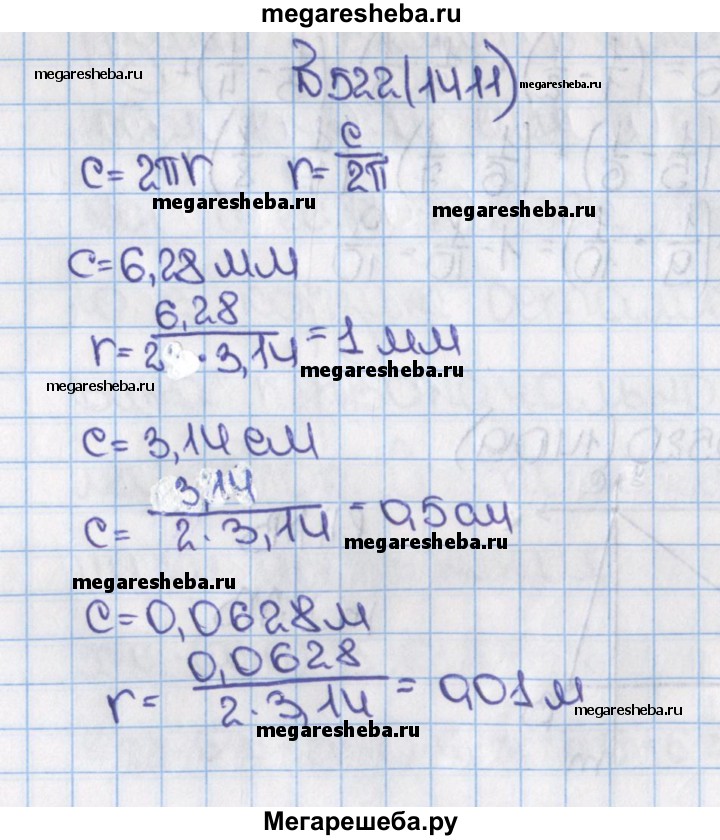 megaresheba.ru
В 522(1411)
megaresheba.ru
megaresheba.ru
c = 2πr r = c/2π
megaresheba.ru
megaresheba.ru
megaresheba.ru
c = 6,28 мм
r = 6,28/2 · 3,14 = 1 мм
megaresheba.ru
megaresheba.ru
c = 3,14 см
c = 3,14/2 · 3,14 = 0,5 см
megaresheba.ru
megaresheba.ru
c = 0,0628 м
r = 0,0628/2 · 3,14 = 0,01 м
megaresheba.ru
megaresheba.ru
Мегарешеба.ру